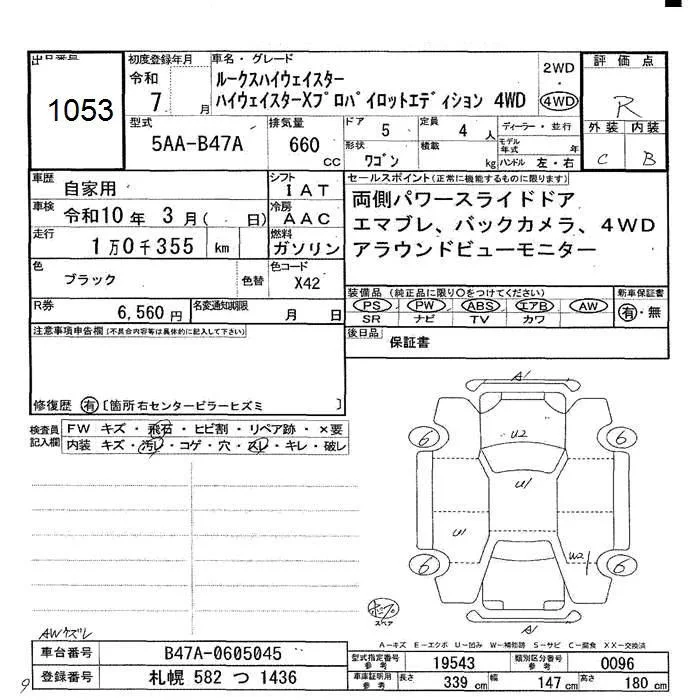 出品番号
1053
初度登録年月
令和
7 月
車名・グレード
ルークスハイウェイスター
ハイウェイスターXプロパイロットエディション 4WD
2WD
4WD
評価点
R
外装 内装
C B
型式
5AA-B47A
排気量
660 cc
ドア 5
定員 4 人
形状 ワゴン
積載 kg
ディーラー・並行
モデル年式 年
ハンドル 左・右
車歴 自家用
シフト IAT
車検 令和10年 3月( 日)
冷房 AAC
走行 1万0千355 km
燃料 ガソリン
色 ブラック
色替
色コード X42
R券 6,560円
名変通知期限 月 日
セールスポイント(正常に機能するものに限ります)
両側パワースライドドア
エマブレ、バックカメラ、4WD
アラウンドビューモニター
装備品 (純正品に限り○をつけてください)
PS PW ABS エアB AW
SR ナビ TV カワ
新車保証書
有・無
後日品
保証書
注意事項申告欄(不具合内容等は具体的に記入して下さい)
修復歴 有 [箇所右センターピラーヒズミ ]
検査員記入欄
FW キズ・飛石・ヒビ割・リペア跡・×要
内装 キズ・汚レ・コゲ・穴・スレ・キレ・破レ
A1
U2
6 6
U1
U1
W2
6 6
A1
スペア
AWキズレ
A-キズ E-エクボ U-凹み W-補修跡 S-サビ C-腐食 XX-交換済
車台番号 B47A-0605045
登録番号 札幌 582 つ 1436
型式指定番号 参考 19543
類別区分番号 参考 0096
車庫証明用 参考 長さ 339 cm 幅 147 cm 高さ 180 cm
9